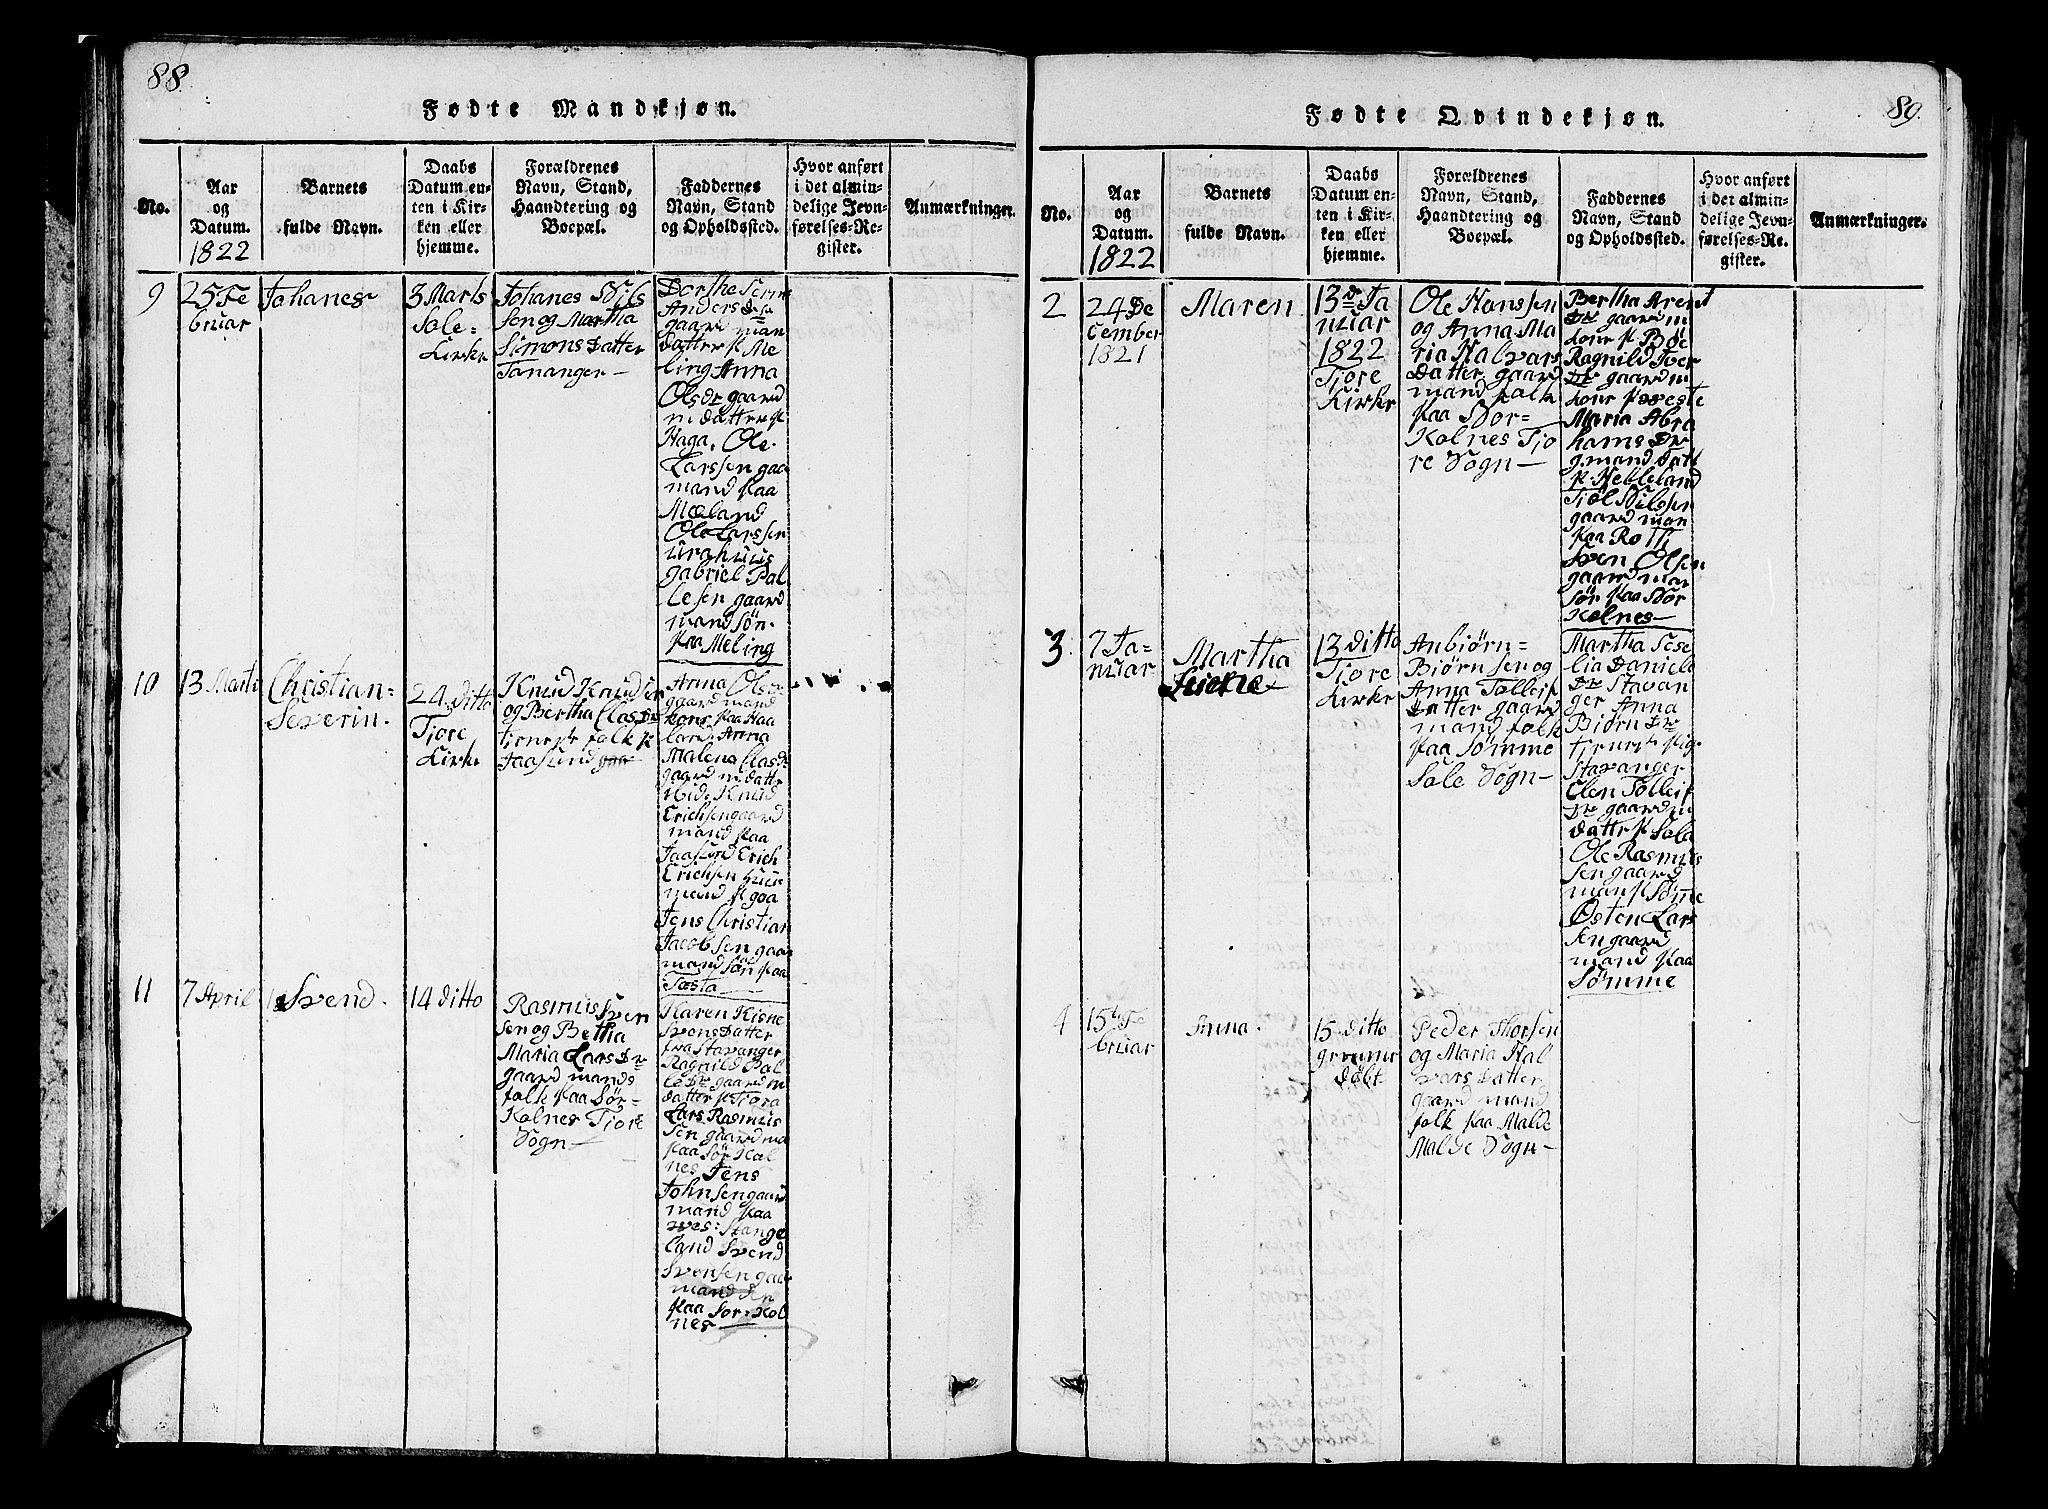 88.
Fødte Mandkjøn.
No.
Aar
og
Datum.
1822
Barnets
fulde Navn.
Daabs
Datum en-
ten i Kir-
ken eller
hjemme.
Forældrenes
Navn, Stand,
Haandtering og
Boepæl.
Faddernes
Navn, Stand
og Opholdssted.
Hvor anført
i det almin-
delige Jevn-
førelses-Re-
gister.
Anmærkninger.
9
25 Fe
bruar
Johanes
3 Marts
Sole-
Kirke
Johanes Nils
sen og Martha
Simons Datter
Tananger
Dorthe
Anders
gaard man
datter p Me
ling Anna
Ols dr gaard
m datter p
Haga. Ole
Larssen gaa
mand paa
Mæland
Ole Larssen
gabriel Pal
lesen gaard
mand søn
paa Meling
10
13 Marti
Christian-
Severin.
24 ditto
Tjore
Kirke
Knud Knudsen
og Bertha Clas Dr
tjeneste folk p
Jaasund
Anna Ols
gaard mand
kone paa Haa
land Anna
Malena Clas dr
gaard m datter
Knud
Erichsen gaard
mand paa
Jaasund Erich
Erichsen
mand p goa
Jens Christian
Jacobsen gaa
mand søn paa
Tæsta
11
7 April
Svend.
14 ditto
Rasmus Sven
sen og Betha
Maria Lars Dr
gaard mands
folk paa Sør-
Kolnes Tjore
Sogn
Karen Kiene
Svens Datter
fra Stavanger
Ragnild Pal
le Dr gaard m
datter p Tjora
Lars Rasmus
sen gaard ma
paa Sør Kol
nes Jens
Johnsen gaard
mand paa
ves: Stange
land Svend
Svensen gaa
mand søn
paa Sør: Kol
nes
89.
Fødte Qvindekjøn.
No.
Aar
og
Datum.
1822
Barnets
fulde Navn.
Daabs
Datum en-
ten i Kir-
ken eller
hjemme.
Forældrenes
Navn, Stand,
Haandtering og
Boepæl.
Faddernes
Navn, Stand
og Opholdssted.
Hvor anført
i det almin-
delige Jevn-
førelses-Re-
gister.
Anmærkninger.
2
24 De
cember
1821
Maren
13de Ja
nuar
1822
Tjore
Kirke
Ole Hanssen
og Anna Ma
ria Halvars
Datter gaard
mand folk
paa Nor-
Kolnes Tjo
re Sogn
Bertha Arent
Dr gaard m
kone p Böe
Ragnild Iver
Dr gaard m
kone p veste
Maria Abra
hams Dr
g.mand datt
p. Helleland
Tjøl Nilssen
gaard man
paa Rott
Sven Olsen
gaard man
søn paa Nor
Kolnes
3
7 Ja-
nuar
Martha
13 ditto
Tjore
Kirke
Anbiørn-
Biørnsen og
Anna Tolleif
Datter gaard
mand folk
paa Sømme
Sole Sogn
Martha Sese
lia Daniels
Dr Stavan
ger Anna
Biørn Dr
tjeneste pige
Stavanger
Elen Tolleif
Dr gaard m
datter p Sola
Ole Rasmus
sen gaard
man p Sømme
Østen Lars
sen gaard
mand paa
Sømme
4
15 Fe
bruar
Anna.
15 ditto
hjemme
døbt
Peder Thorsen
og Maria Hal
vars Datter
gaard mand
folk paa Malde
Malde Sogn